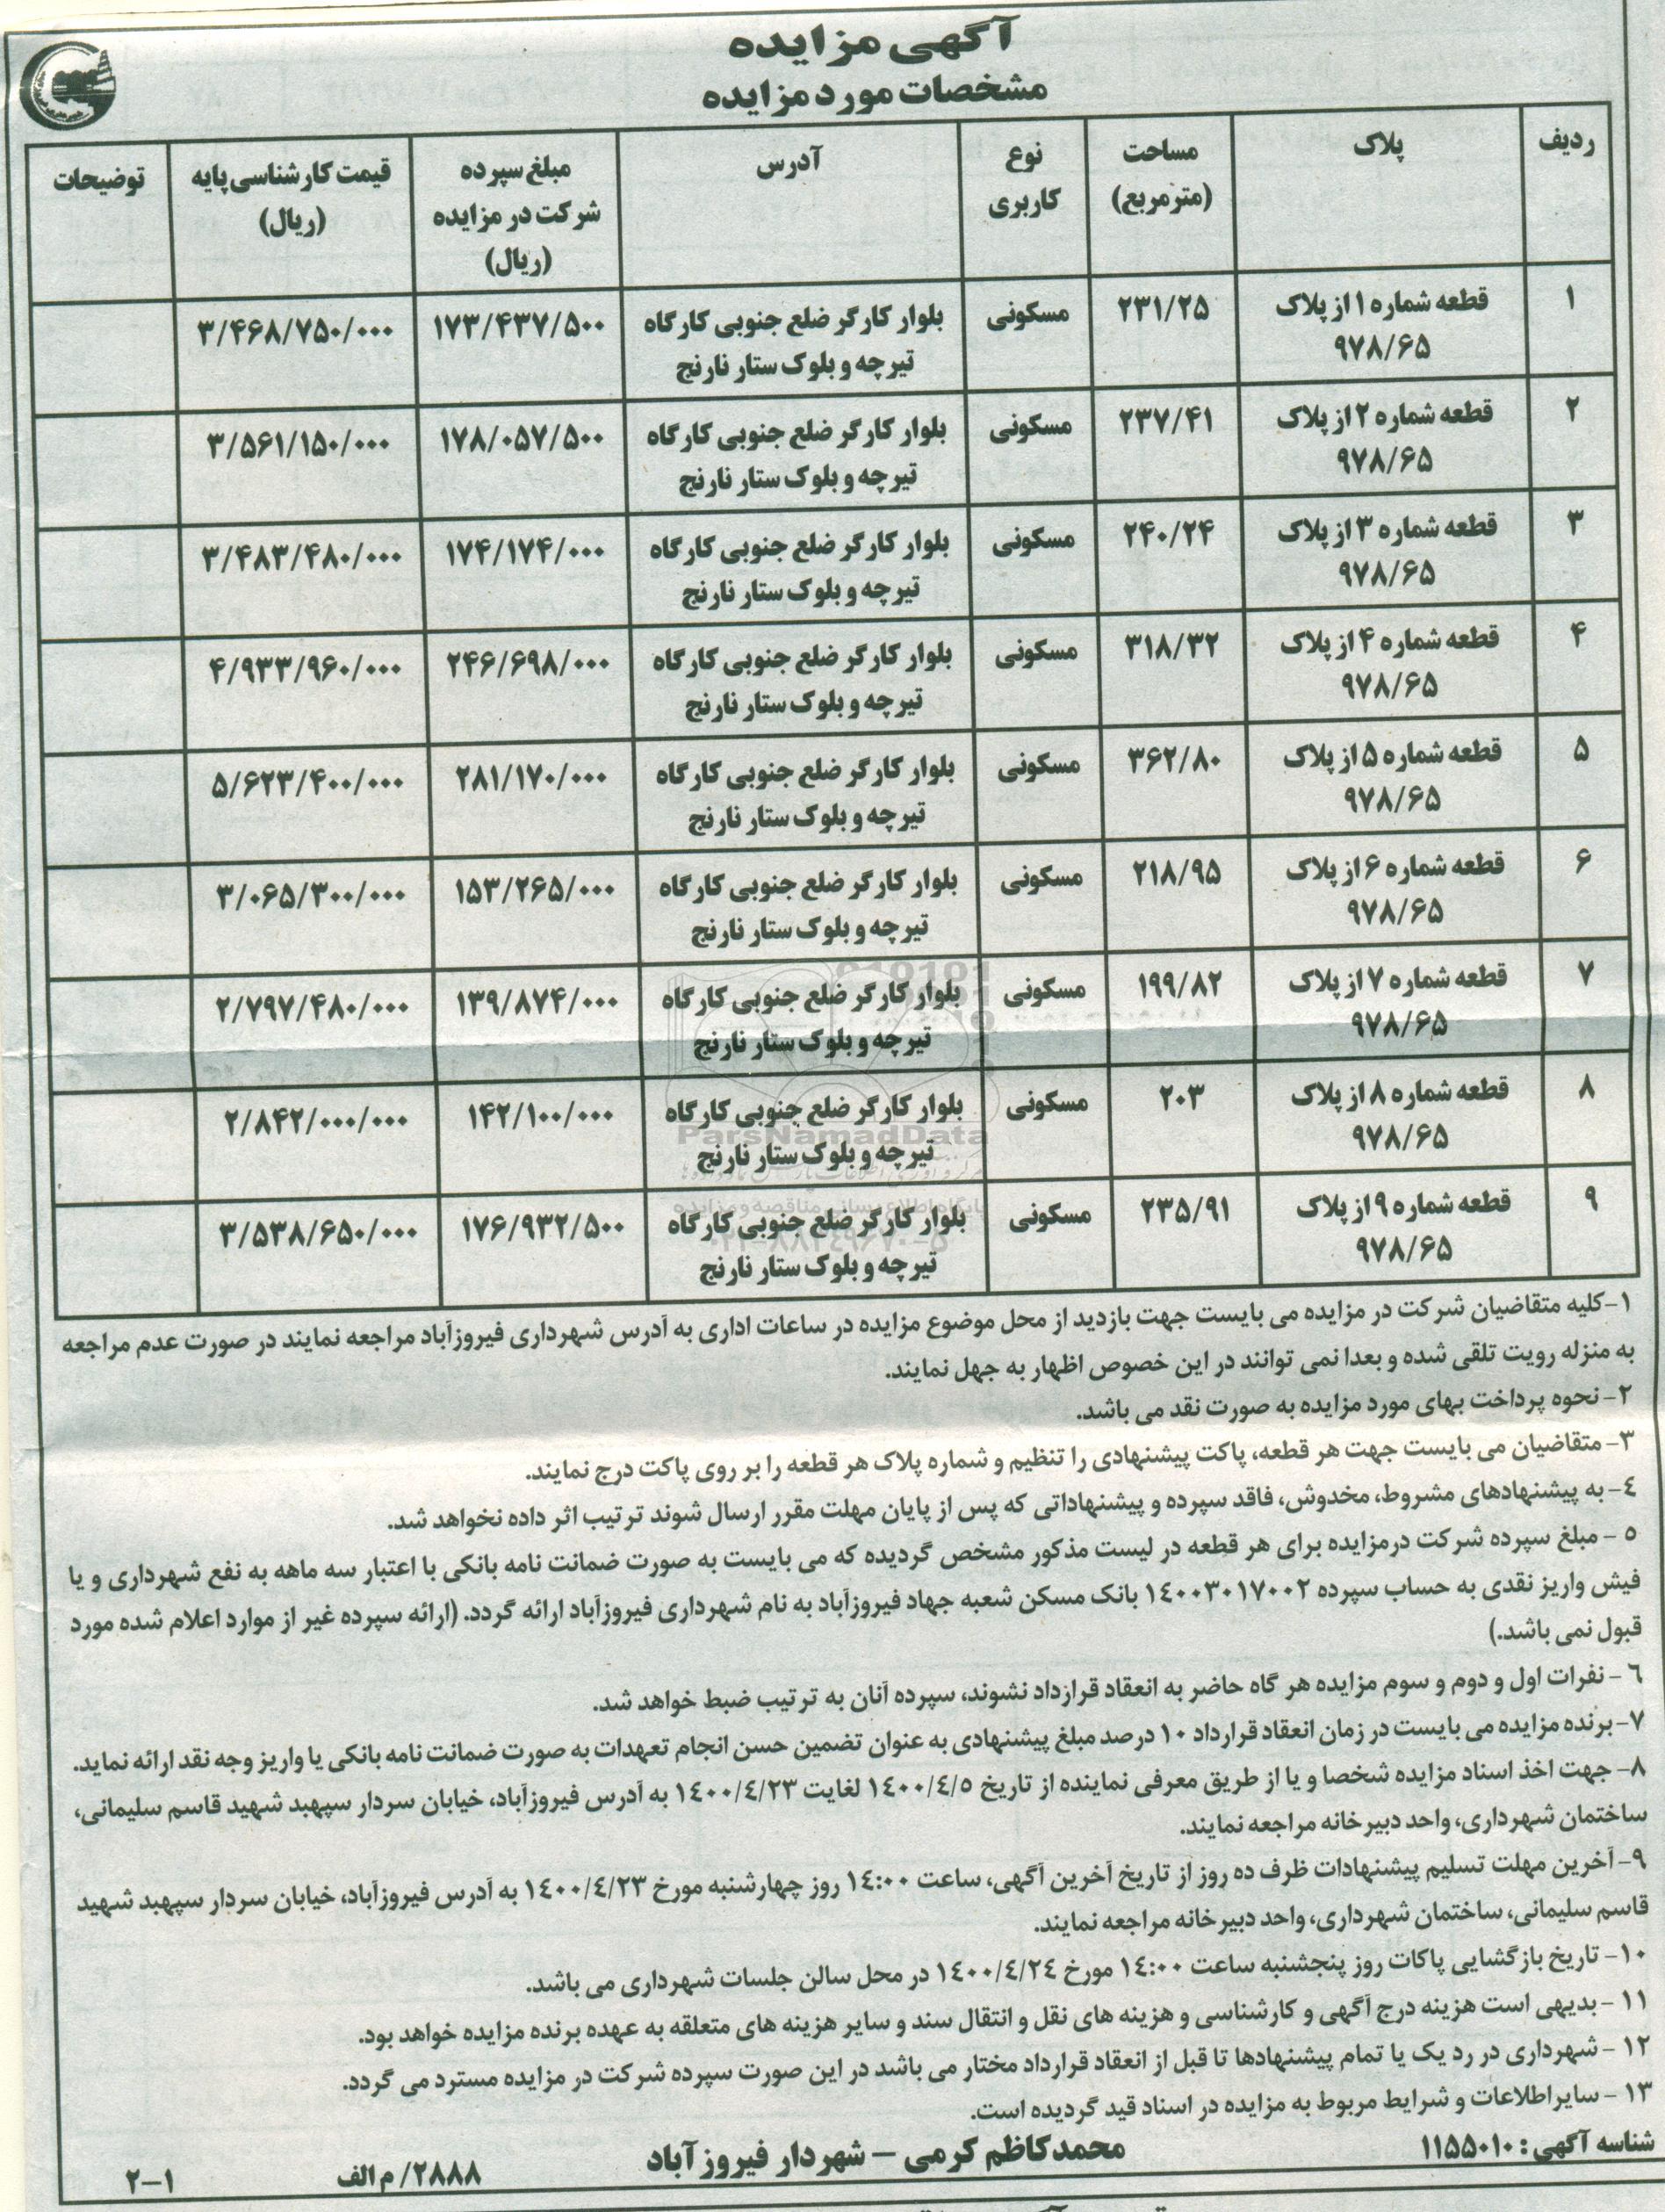 آگهی مزایده
مشخصات مورد مزایده
ردیف	پلاک	مساحت (مترمربع)	نوع کاربری	آدرس	مبلغ سپرده شرکت در مزایده (ریال)	قیمت کارشناسی پایه (ریال)	توضیحات
۱	قطعه شماره ۱ از پلاک ۹۷۸/۶۵	۲۳۱/۲۵	مسکونی	بلوار کارگر ضلع جنوبی کارگاه تیرچه و بلوک ستار نارنج	۱۷۳/۴۳۷/۵۰۰	۳/۴۶۸/۷۵۰/۰۰۰
۲	قطعه شماره ۲ از پلاک ۹۷۸/۶۵	۲۳۷/۴۱	مسکونی	بلوار کارگر ضلع جنوبی کارگاه تیرچه و بلوک ستار نارنج	۱۷۸/۰۵۷/۵۰۰	۳/۵۶۱/۱۵۰/۰۰۰
۳	قطعه شماره ۳ از پلاک ۹۷۸/۶۵	۲۴۰/۲۴	مسکونی	بلوار کارگر ضلع جنوبی کارگاه تیرچه و بلوک ستار نارنج	۱۷۴/۱۷۴/۰۰۰	۳/۴۸۳/۴۸۰/۰۰۰
۴	قطعه شماره ۴ از پلاک ۹۷۸/۶۵	۳۱۸/۳۲	مسکونی	بلوار کارگر ضلع جنوبی کارگاه تیرچه و بلوک ستار نارنج	۲۴۶/۶۹۸/۰۰۰	۴/۹۳۳/۹۶۰/۰۰۰
۵	قطعه شماره ۵ از پلاک ۹۷۸/۶۵	۳۶۲/۸۰	مسکونی	بلوار کارگر ضلع جنوبی کارگاه تیرچه و بلوک ستار نارنج	۲۸۱/۱۷۰/۰۰۰	۵/۶۲۳/۴۰۰/۰۰۰
۶	قطعه شماره ۶ از پلاک ۹۷۸/۶۵	۲۱۸/۹۵	مسکونی	بلوار کارگر ضلع جنوبی کارگاه تیرچه و بلوک ستار نارنج	۱۵۳/۲۶۵/۰۰۰	۳/۰۶۵/۳۰۰/۰۰۰
۷	قطعه شماره ۷ از پلاک ۹۷۸/۶۵	۱۹۹/۸۲	مسکونی	بلوار کارگر ضلع جنوبی کارگاه تیرچه و بلوک ستار نارنج	۱۳۹/۸۷۴/۰۰۰	۲/۷۹۷/۴۸۰/۰۰۰
۸	قطعه شماره ۸ از پلاک ۹۷۸/۶۵	۲۰۳	مسکونی	بلوار کارگر ضلع جنوبی کارگاه تیرچه و بلوک ستار نارنج	۱۴۲/۱۰۰/۰۰۰	۲/۸۴۲/۰۰۰/۰۰۰
۹	قطعه شماره ۹ از پلاک ۹۷۸/۶۵	۲۳۵/۹۱	مسکونی	بلوار کارگر ضلع جنوبی کارگاه تیرچه و بلوک ستار نارنج	۱۷۶/۹۳۲/۵۰۰	۳/۵۳۸/۶۵۰/۰۰۰
ParsNamadData
پایگاه اطلاع رسانی مناقصه و مزایده
۱-کلیه متقاضیان شرکت در مزایده می بایست جهت بازدید از محل موضوع مزایده در ساعات اداری به آدرس شهرداری فیروزآباد مراجعه نمایند در صورت عدم مراجعه
به منزله رویت تلقی شده و بعدا نمی توانند در این خصوص اظهار به جهل نمایند.
۲- نحوه پرداخت بهای مورد مزایده به صورت نقد می باشد.
۳- متقاضیان می بایست جهت هر قطعه، پاکت پیشنهادی را تنظیم و شماره پلاک هر قطعه را بر روی پاکت درج نمایند.
٤- به پیشنهادهای مشروط، مخدوش، فاقد سپرده و پیشنهاداتی که پس از پایان مهلت مقرر ارسال شوند ترتیب اثر داده نخواهد شد.
٥ - مبلغ سپرده شرکت درمزایده برای هر قطعه در لیست مذکور مشخص گردیده که می بایست به صورت ضمانت نامه بانکی با اعتبار سه ماهه به نفع شهرداری و یا
فیش واریز نقدی به حساب سپرده ١٤٠٠٣٠١٧٠٠٢ بانک مسکن شعبه جهاد فیروزآباد به نام شهرداری فیروزآباد ارائه گردد. (ارائه سپرده غیر از موارد اعلام شده مورد
قبول نمی باشد.)
٦ - نفرات اول و دوم و سوم مزایده هر گاه حاضر به انعقاد قرارداد نشوند، سپرده آنان به ترتیب ضبط خواهد شد.
۷-برنده مزایده می بایست در زمان انعقاد قرارداد ۱۰ درصد مبلغ پیشنهادی به عنوان تضمین حسن انجام تعهدات به صورت ضمانت نامه بانکی یا واریز وجه نقد ارائه نماید.
۸- جهت اخذ اسناد مزایده شخصا و یا از طریق معرفی نماینده از تاریخ ١٤٠٠/٤/٥ لغایت ١٤٠٠/٤/٢٣ به آدرس فیروزآباد، خیابان سردار سپهبد شهید قاسم سلیمانی،
ساختمان شهرداری، واحد دبیرخانه مراجعه نمایند.
۹- آخرین مهلت تسلیم پیشنهادات ظرف ده روز از تاریخ آخرین آگهی، ساعت ١٤:٠٠ روز چهارشنبه مورخ ١٤٠٠/٤/٢٣ به آدرس فیروزآباد، خیابان سردار سپهبد شهید
قاسم سلیمانی، ساختمان شهرداری، واحد دبیرخانه مراجعه نمایند.
۱۰- تاریخ بازگشایی پاکات روز پنجشنبه ساعت ١٤:٠٠ مورخ ١٤٠٠/٤/٢٤ در محل سالن جلسات شهرداری می باشد.
۱۱ - بدیهی است هزینه درج آگهی و کارشناسی و هزینه های نقل و انتقال سند و سایر هزینه های متعلقه به عهده برنده مزایده خواهد بود.
۱۲ - شهرداری در رد یک یا تمام پیشنهادها تا قبل از انعقاد قرارداد مختار می باشد در این صورت سپرده شرکت در مزایده مسترد می گردد.
۱۳ - سایراطلاعات و شرایط مربوط به مزایده در اسناد قید گردیده است.
شناسه آگهی : ۱۱۵۵۰۱۰
محمدکاظم کرمی – شهردار فیروزآباد
۲۸۸۸/ م الف
۲-۱